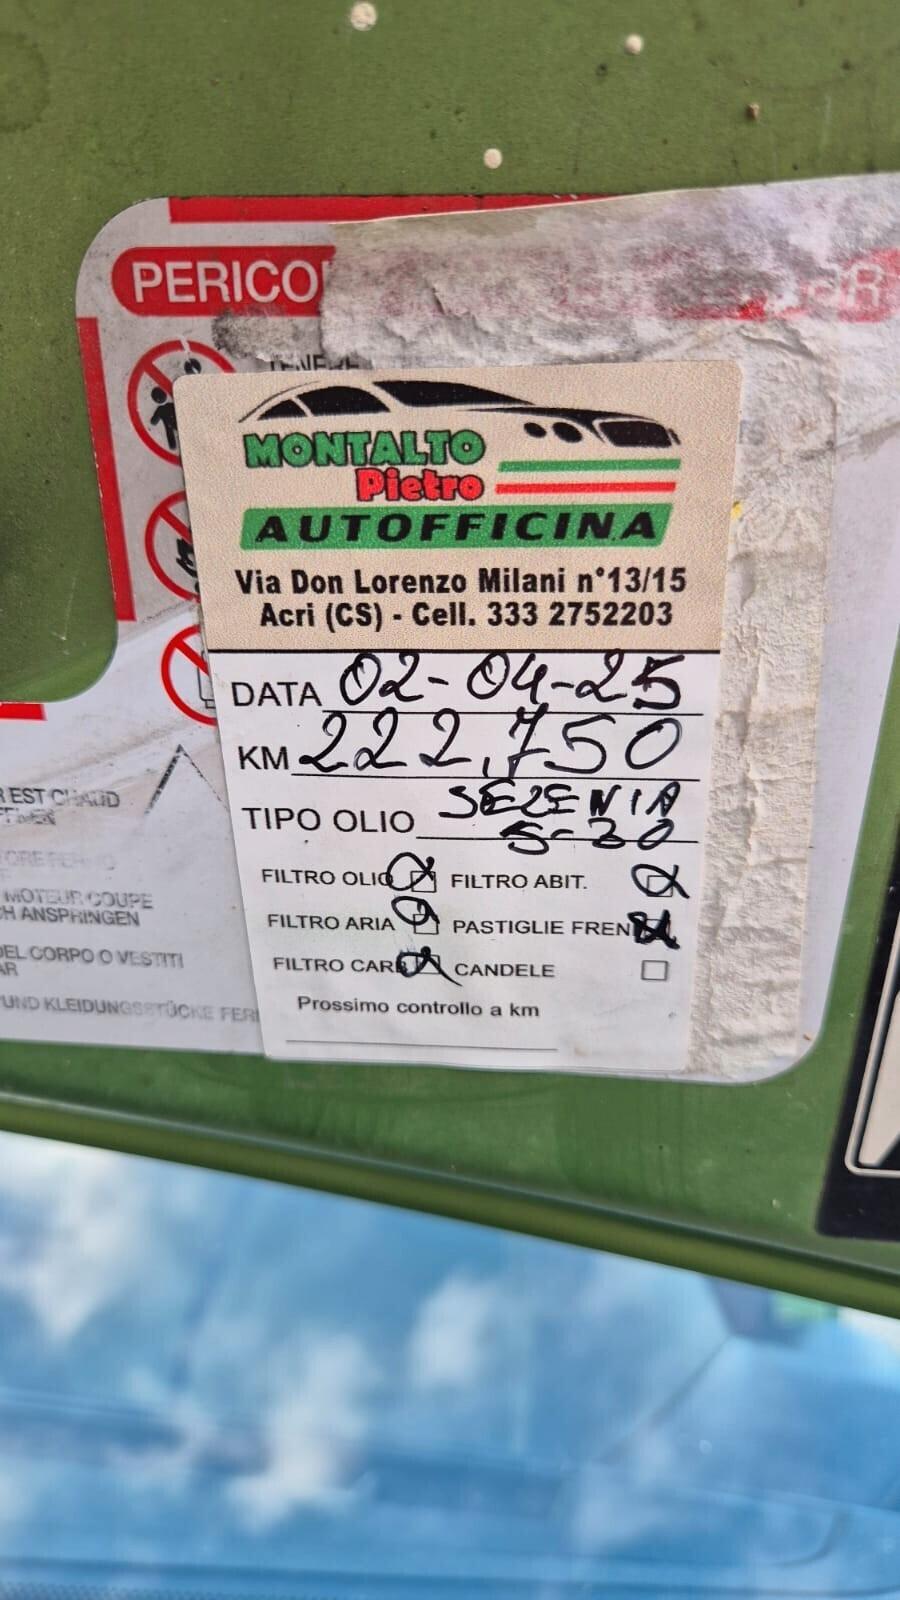 PERICO
TENERE
MONTALTO
Pietro
AUTOFFICINA
Via Don Lorenzo Milani n°13/15
Acri (CS) - Cell. 333 2752203
DATA 02-04-25
KM 222.750
TIPO OLIO SELENIA
5-30
FILTRO OLIO FILTRO ABIT.
FILTRO ARIA PASTIGLIE FREN
FILTRO CARB CANDELE
Prossimo controllo a km
R EST CHAUD
MOTEUR COUPE
H ANSPRINGEN
DEL CORPO O VESTITI
AR
UND KLEIDUNGSSTÜCKE FER